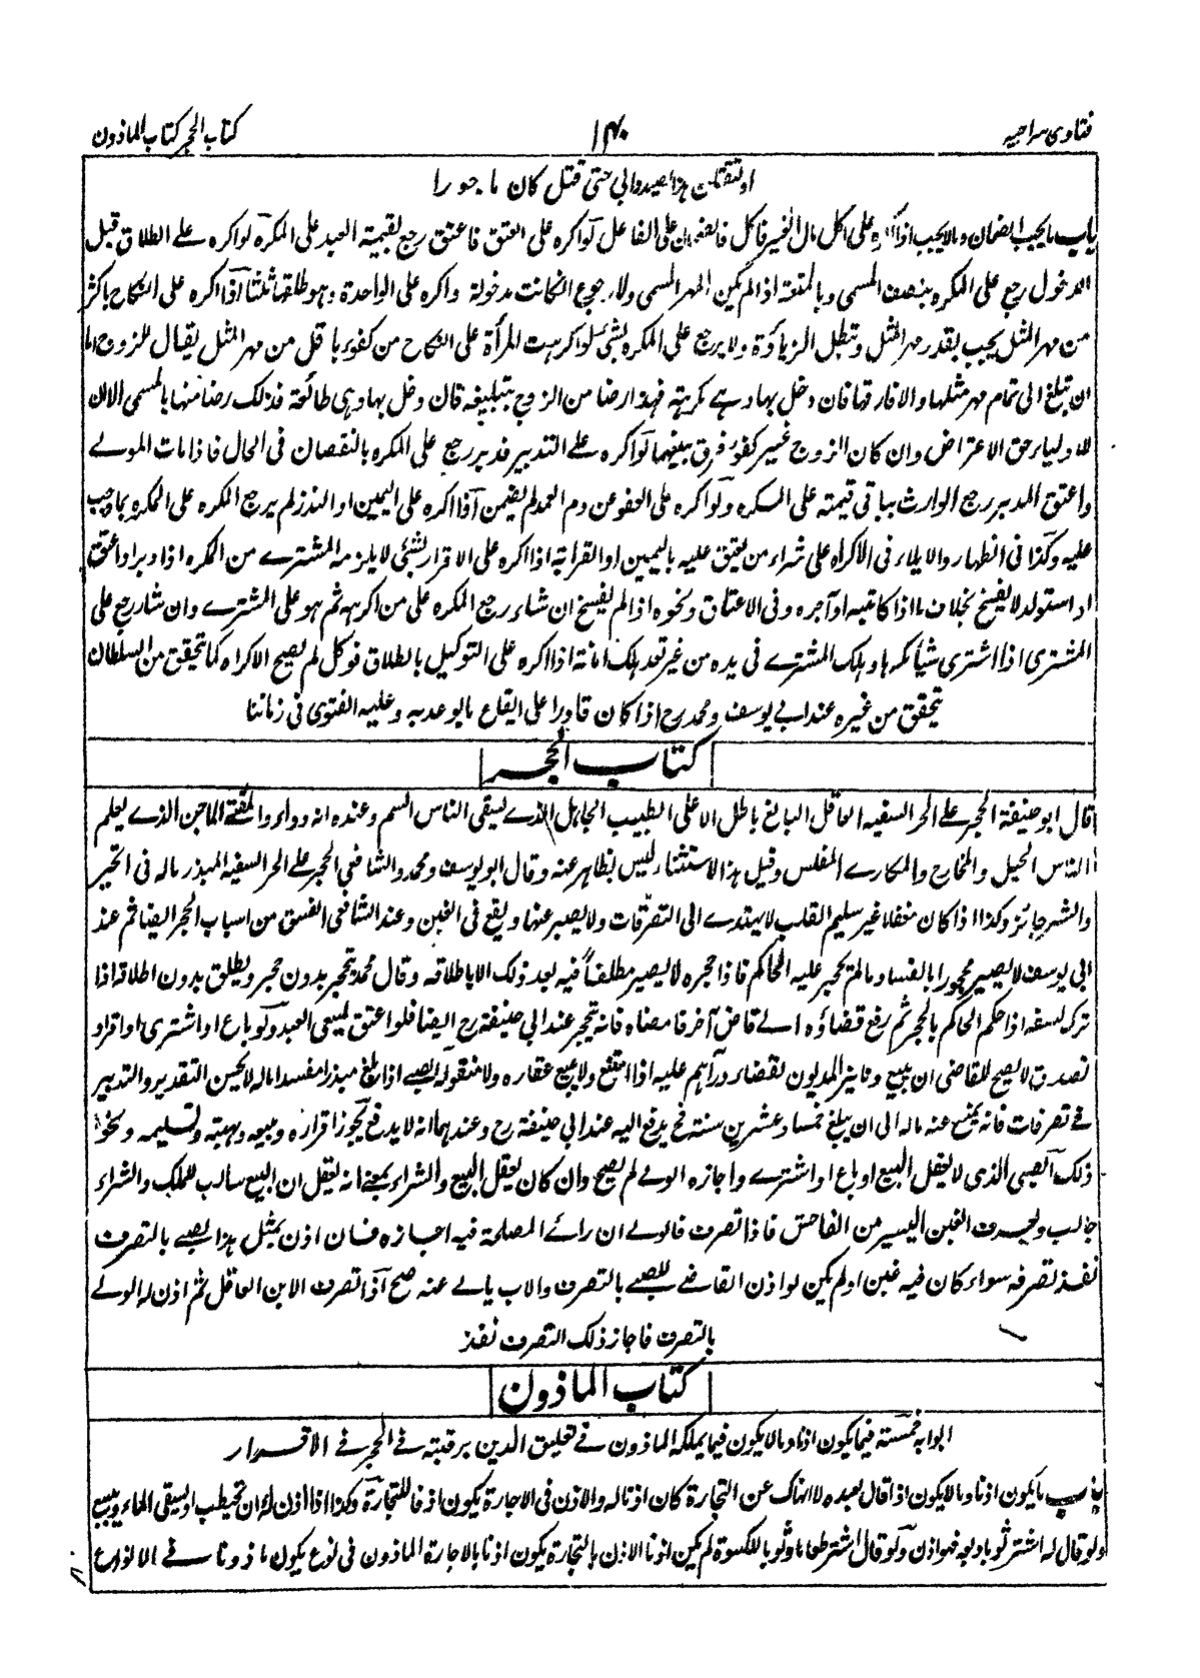 فتاوی سراجیه ١٤٠ كتاب الحجر كتاب الماذون
او لتقتلن هذا عبدی وابی حتی قتل كان ماجورا
باب ما یجب الضمان وما لا یجب اذا اكره علی اكل مال الغیر فاكل فالضمان علی الفاعل لو اكره علی العتق فاعتق رجع بقیمة العبد علی المكره لو اكره علے الطلاق قبل
الدخول رجع علی المكره بنصف المسمی وبالمتعة اذا لم یكن المهر المسمی ولا رجوع ان كانت مدخولة واكره علی الواحدة وهو طلقها ثلثا اذا اكره علی النكاح باكثر
من مهر المثل یجب بقدر مهر المثل وتبطل الزیادة ولا یرجع علی المكره بشئ لو اكرهت المرأة علی النكاح من كفو باقل من مهر المثل یقال للزوج اما
ان تبلغ الی تمام مهر مثلها والا فارقها فان دخل بها وهے كریهة فهذا رضا من الزوج بتبلیغه قان دخل بها وهی طائعة فذلك رضا منها بالمسمی الا ان
للاولیاء حق الاعتراض وان كان الزوج غیر كفو فرق بینهما لو اكره علے التدبیر فدبر رجع علی المكره بالنقصان فی الحال فاذا مات المولے
واعتق المدبر رجع الوارث بباقی قیمته علی المكره ولو اكره علی العفو عن دم العمد لم یضمن اذا اكره علی الیمین او النذر لم یرجع المكره علی المكره بما وجب
علیه وكذا فی الظهار والایلاء فی الاكراه علی شراء من یعتق علیه بالیمین او القرابة اذا اكره علی الاقرار بشئ لا یلزمه المشترے من المكره اذا دبر او اعتق
او استولد لا یفسخ بخلاف ما اذا كاتبه او آجره وفی الاعتاق ونحوه اذا لم یفسخ ان شاء رجع المكره علی من اكرهه ثم هو علی المشترے وان شاء رجع علی
المشتری اذا اشتری شیأ مكرها وهلك المشترے فی یده من غیر تعد یهلك امانة اذا اكره علی التوكیل بالطلاق فوكل لم یصح الاكراه كما یتحقق من السلطان
یتحقق من غیره عند ابی یوسف ومحمد رح اذا كان قادرا علی ایقاع ما یوعد به وعلیه الفتوی فی زماننا
كتاب الحجر
قال ابو حنیفة الحجر علے الحر السفیه العاقل البالغ باطل الا علی الطبیب الجاهل الذے یسقی الناس السم وعنده انه دواء والمفتے الماجن الذے یعلم
الناس الحیل والمخارج والمكارے المفلس وقیل هذا الاستثناء لیس بظاهر عنه وقال ابو یوسف ومحمد والشافعی الحجر علے الحر السفیه المبذر ماله فی الخیر
والشر جائز وكذا اذا كان مغفلا غیر سلیم القلب لا یهتدے الی التصرفات ولا یصبر عنها ویقع فی الغبن وعند الشافعی الفسق من اسباب الحجر ایضا ثم عند
ابی یوسف لا یصیر محجورا بالفساد ما لم یحجر علیه الحاكم فاذا حجره لا یصیر مطلقا فیه بعد ذلك الا باطلاقه وقال محمد یحجر بدون حجر ویطلق بدون اطلاقه اذا
ترك لسفه اذا حكم الحاكم بالحجر ثم رفع قضاؤه الے قاض آخر فامضاه فانه یحجر عند ابی حنیفة رح ایضا فلو اعتق لم یسعی العبد ولو باع او اشتری او اقر او
تصدق لا یصح للقاضی ان یبیع دنانیر المدیون لقضاء دراهم علیه اذا امتنع ولا یبیع عقاره ولا منقوله الصبے اذا بلغ مبذرا مفسدا ماله لا یحسن التقدیر والتدبیر
فے تصرفات فانه یمنع عنه ماله الی ان یبلغ خمسا وعشرین سنة فح یدفع الیه عند ابی حنیفة رح وعندهما انه لا یدفع یجوز اقراره وبیعه وهبته وتسلیمه ونحو
ذلك الصبی الذی لا یعقل البیع او باع او اشترے واجازه الولے لم یصح وان كان یعقل البیع والشراء بمعنے انه یعقل ان البیع سالب للملك والشراء
جالب ویعرف الغبن الیسیر من الفاحش فاذا تصرف فالولے ان راے المصلحة فیه اجازه فان اذن بمثل هذا الصبے بالتصرف
نفذ تصرفه سواء كان فیه غبن او لم یكن لو اذن القاضے للصبے بالتصرف والاب یابے عنه صح اذا تصرف الابن العاقل ثم اذن له الولے
بالتصرف فاجاز ذلك التصرف نفذ
كتاب الماذون
ابوابه خمسة فیما یكون اذنا وما لا یكون فیما یملكه الماذون فے تعلیق الدین برقبته فے الحجر فے الاقرار
باب ما یكون اذنا وما لا یكون اذا قال لعبده لا انهاك عن التجارة كان اذنا له والاذن فی الاجارة یكون اذنا للتجارة وكذا اذا اذن له ان یحتطب او یسقی الماء ویبیع
ولو قال له اشتر ثوبا وبعه فهو اذن ولو قال اشتر طعاما وثوبا للكسوة لم یكن اذنا الاذن بالتجارة یكون اذنا بالاجارة الماذون فی نوع یكون ماذونا فے الانواع